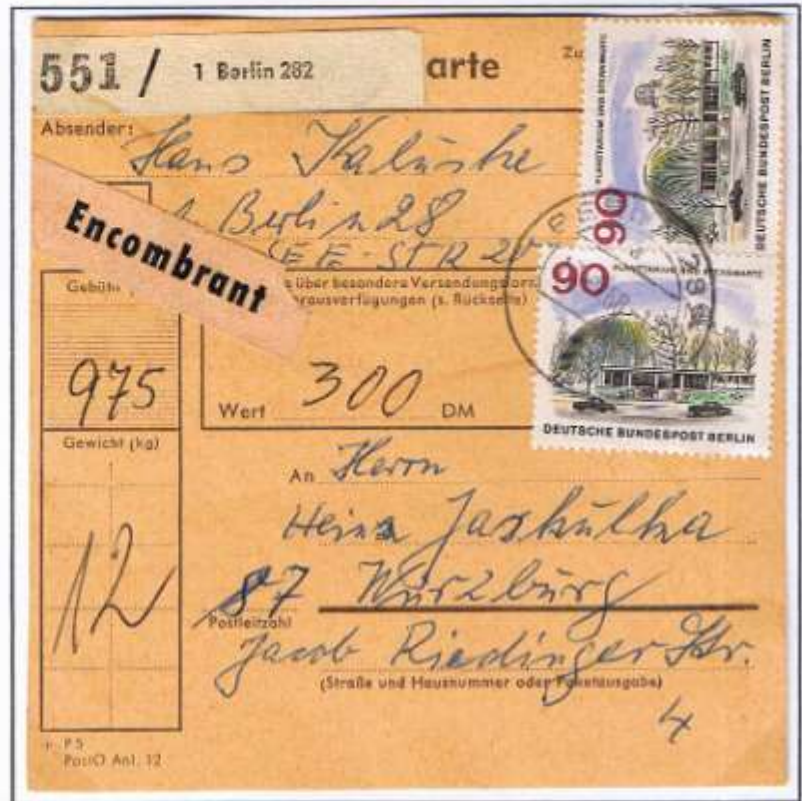 551 / 1 Berlin 282 arte Zu
Absender:
Hans Kaluske
1 Berlin 28
EE-STR 20
Encombrant
Gebühr
e über besondere Versendungsform
orausverfügungen (s. Rückseite)
975
Wert 300 DM
Gewicht (kg)
12
An Herrn
Heinz Jaskulka
87 Würzburg
Postleitzahl
Jacob Riedinger Str.
(Straße und Hausnummer oder Paketausgabe)
4
+ P5
PostO Anl. 12
90
PLANETARIUM UND STERNWARTE
DEUTSCHE BUNDESPOST BERLIN
90
PLANETARIUM UND STERNWARTE
DEUTSCHE BUNDESPOST BERLIN